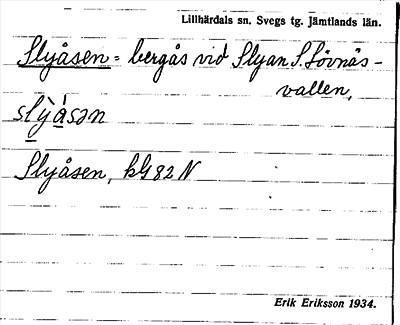 Lillhärdals sn. Svegs tg. Jämtlands län.
Slyåsen = bergås vid Slyan S. Lövnäs-
vallen,
slỳásən
Slyåsen, kG82N
Erik Eriksson 1934.